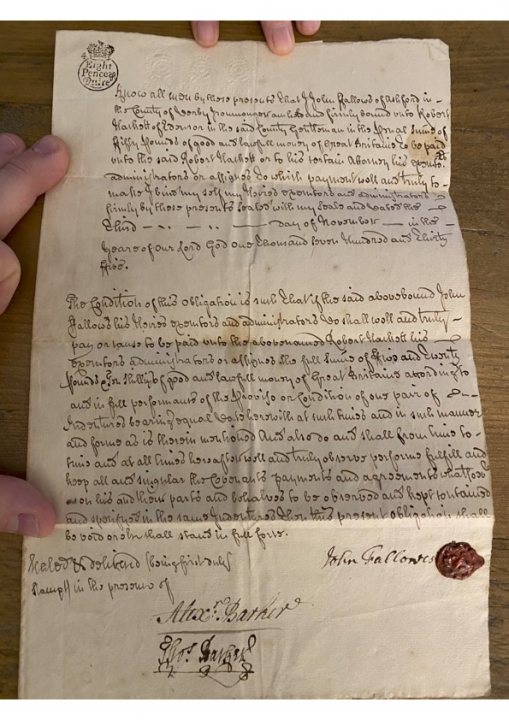 Eight
Pence
Quire
Know all Men by these presents That I John Fallows of Ashford in
the County of Derby Ironmonger am held and firmly bound unto Robert
Hackett of Edensor in the said County Gentleman in the Penal Sume of
fifty Pounds of good and lawfull money of Great Brittaine to be paid
unto the said Robert Hackett or to his certain Attorney his Execut.
administrators or assignes To which payment well and truly to
make I bind my self my Heires executors and administrators
firmly by these presents sealed with my Seale and dated the
Third day of November in the
Yeare of our Lord God one Thousand seven Hundred and Thirty
ffive.
The Condition of this obligation is such That if the said abovebound John
Fallows his Heires executors and administrators do shall well and truly
pay or cause to be paid unto the abovenamed Robert Hackett his
executors administrators or assignes the full Sume of ffive and Twenty
pounds of good and lawfull money of Great Brittaine according to
and in full performance of the Proviso or Condition of one pair of
Indentures bearing equal date herewith at such times and in such manner
and forme as is therein mentioned And also do and shall from time to
time and at all times hereafter well and truly observe performe fulfill and
keep all and singular the Covenants payments and agreements whatsoev
on his and their parts and behalves to be observed and kept contained
and specified in the same Indentures Then this present obligation shall
be void or els shall stand in full force.
Sealed & delivered (being first duly
stampt) in the presence of
John Fallowes
Alexr. Barker
Thos. Barker